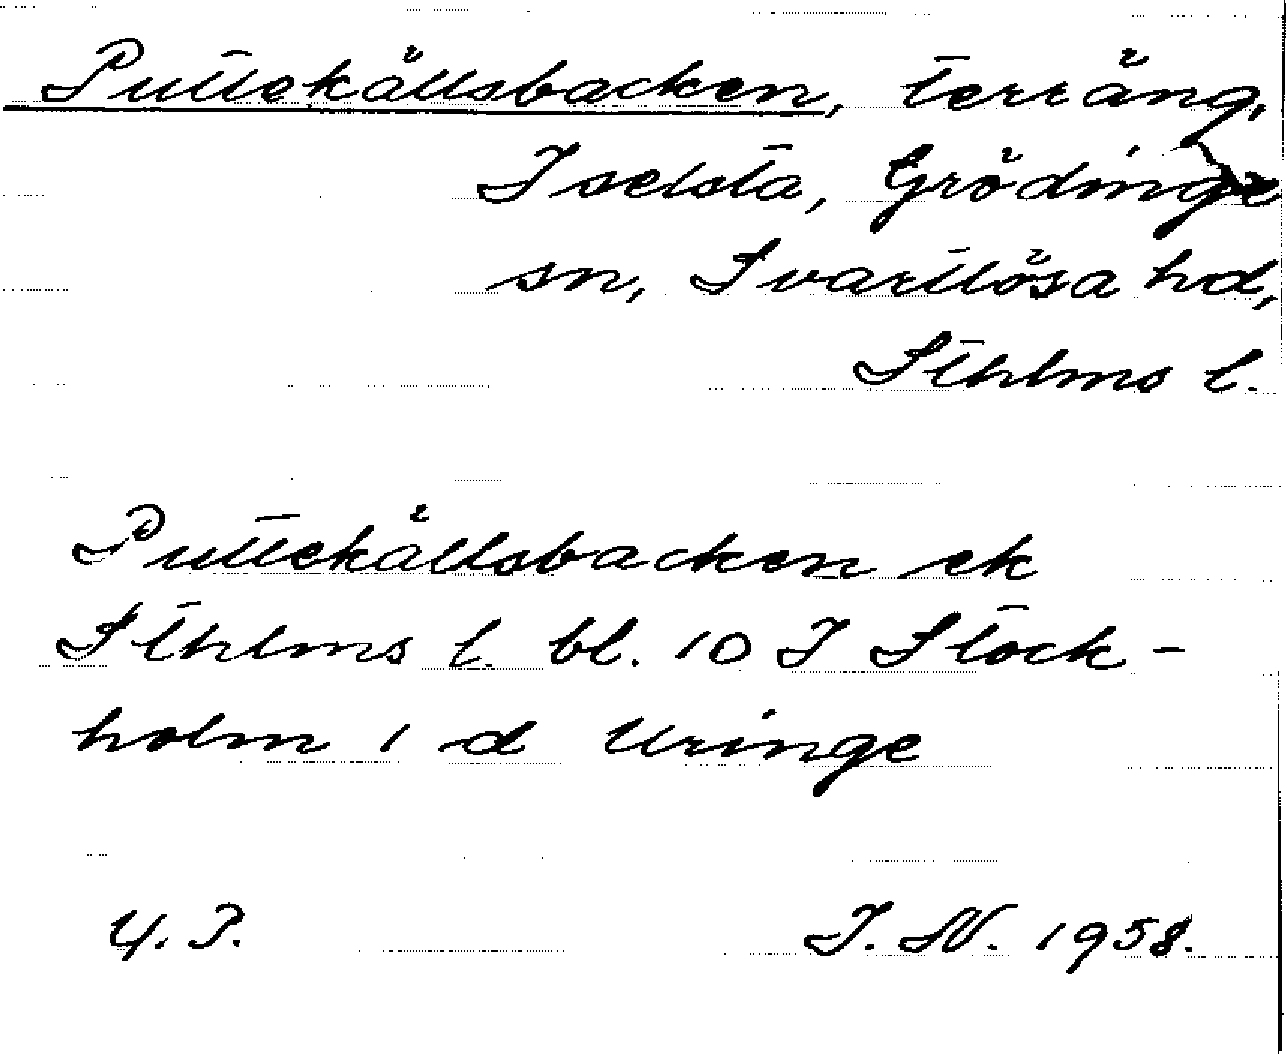 Puttekällsbacken, terräng,
Iselsta, Grödinge
sn, Svartlösa hd,
Sthlms l.
Puttekällsbacken ek
Sthlms l. bl. 10 I Stock-
holm 1 d Uringe
I. N. 1958.